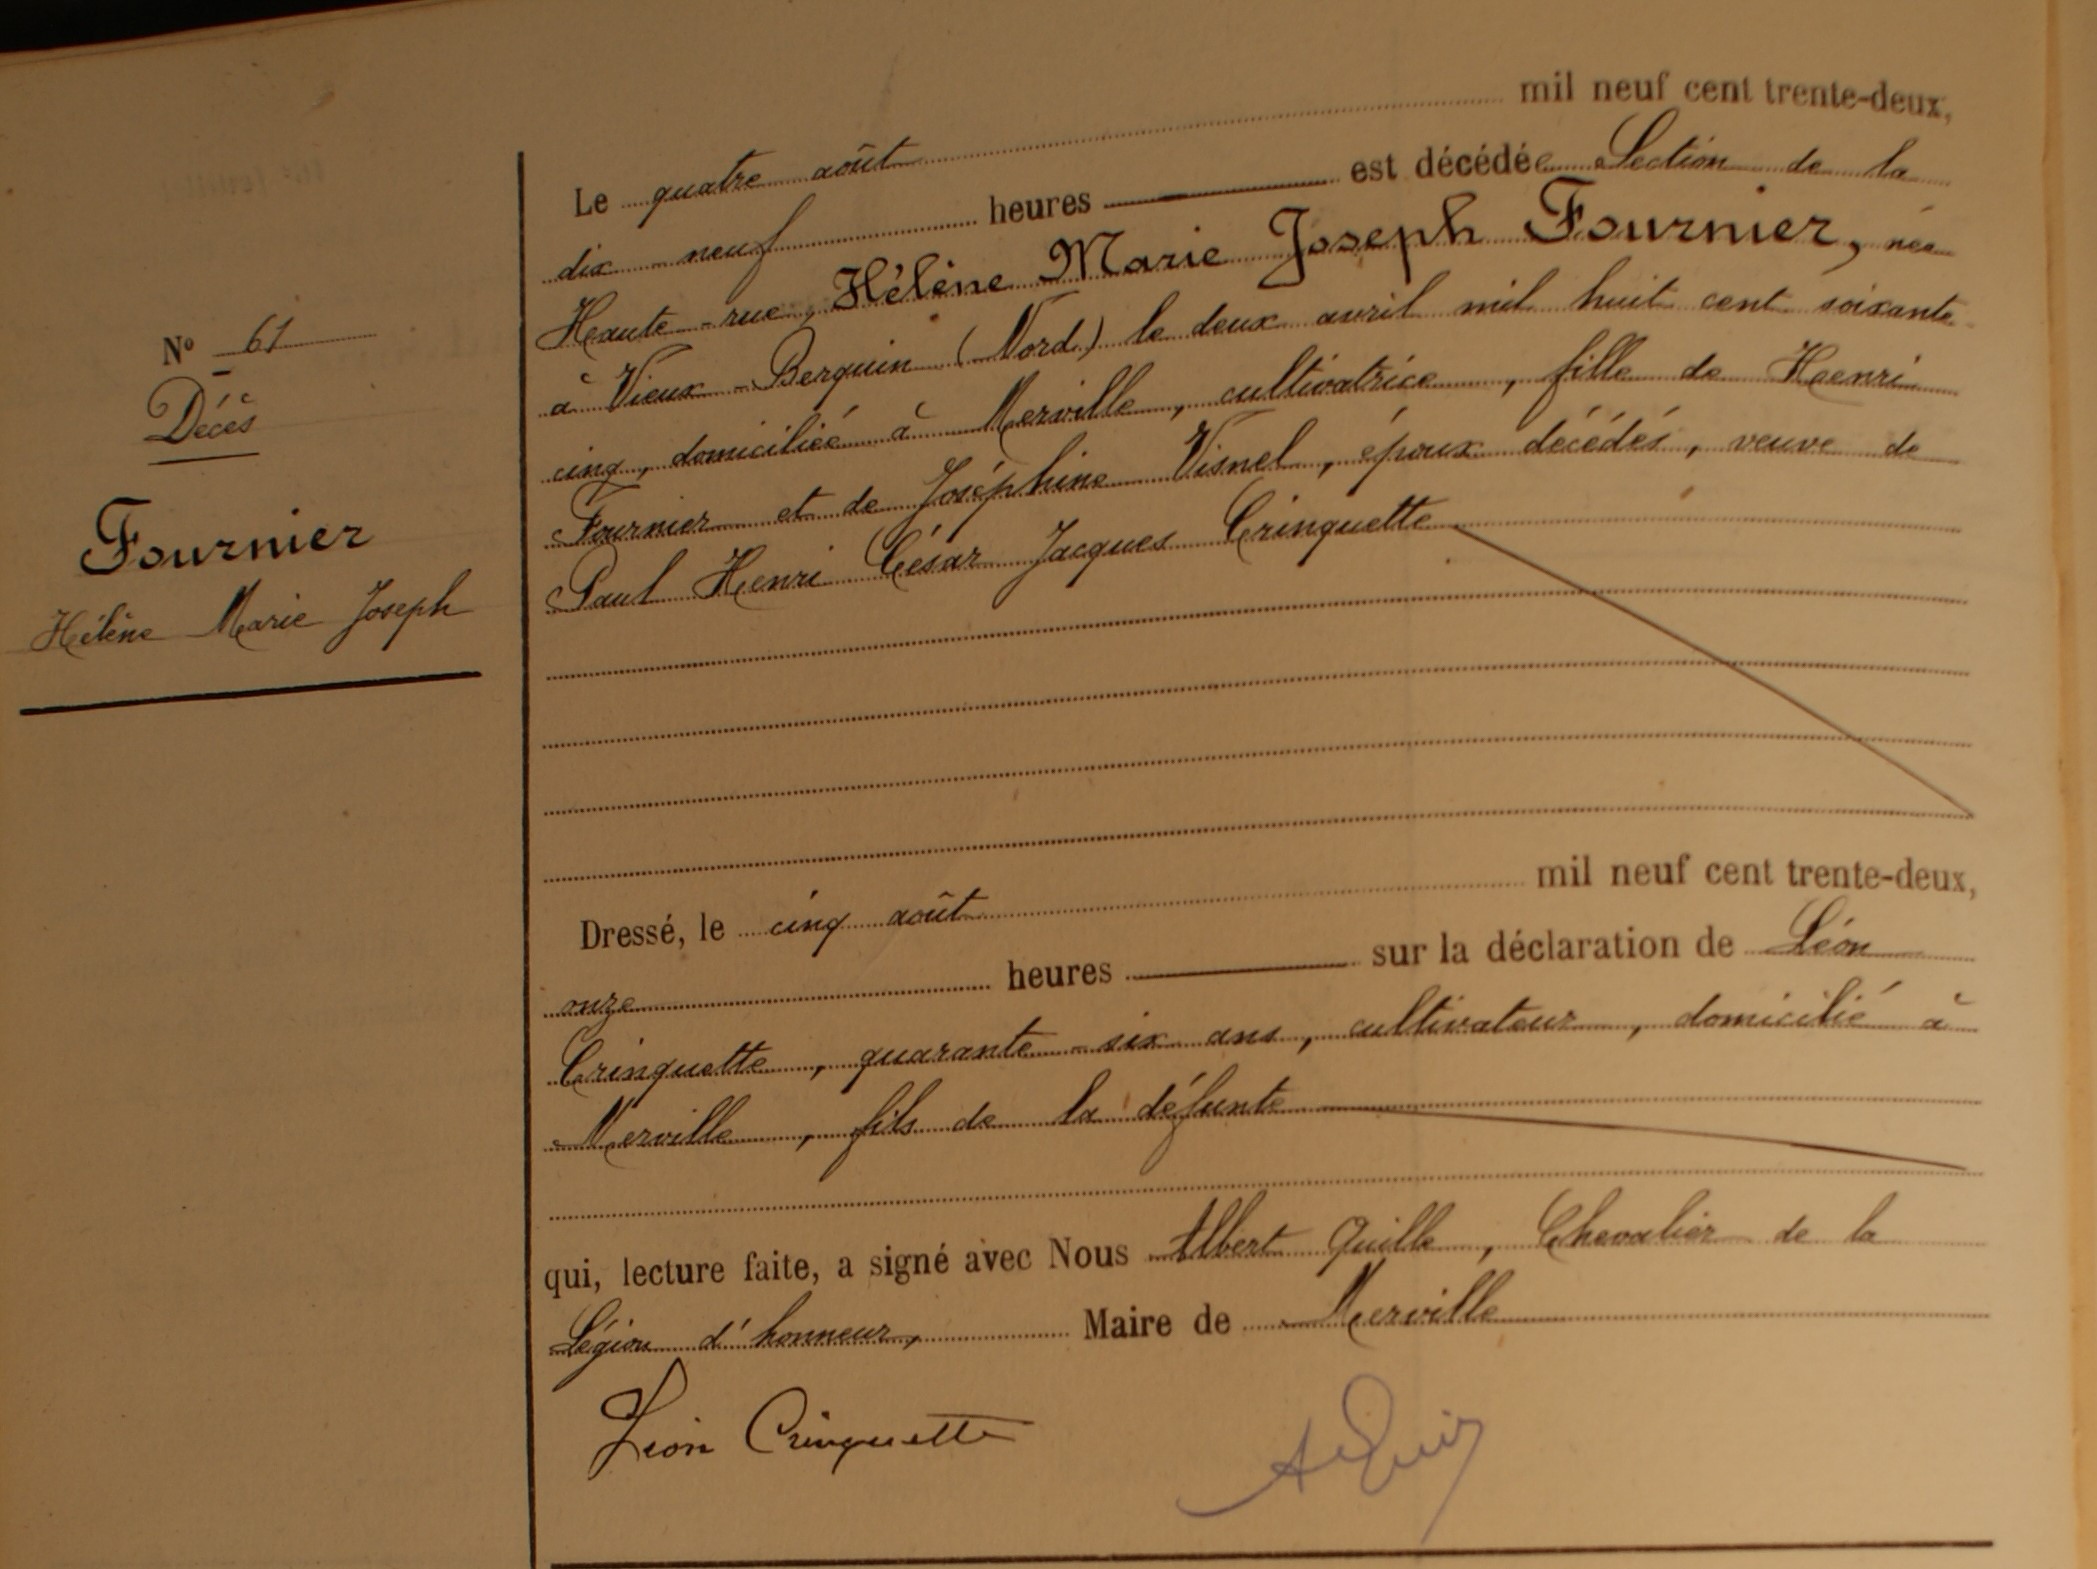 N° 61
Décès
Fournier
Hélène Marie Joseph
Le quatre août mil neuf cent trente-deux,
dix-neuf heures est décédée Section de la
Haute-rue, Hélène Marie Joseph Fournier, née
à Vieux-Berquin (Nord) le deux avril mil huit cent soixante
cinq, domiciliée à Merville, cultivatrice, fille de Henri
Fournier et de Joséphine Visnel, époux décédés, veuve de
Paul Henri César Jacques Crinquette
Dressé, le cinq août mil neuf cent trente-deux,
onze heures sur la déclaration de Léon
Crinquette, quarante-six ans, cultivateur, domicilié à
Merville, fils de la défunte
qui, lecture faite, a signé avec Nous Albert Quille, Chevalier de la
Légion d'honneur, Maire de Merville
Léon Crinquette